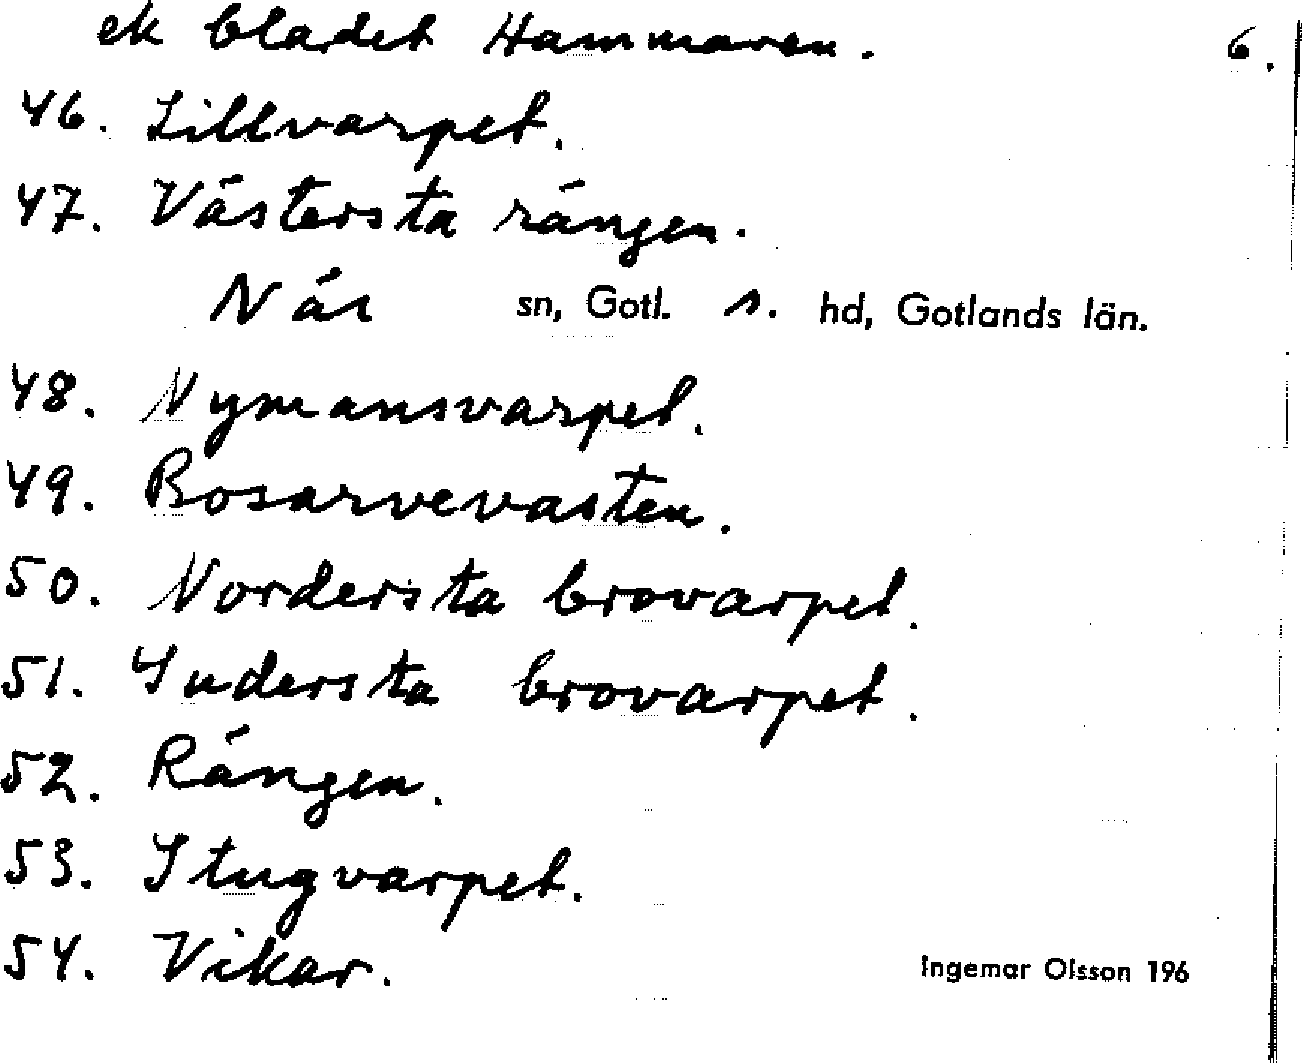 ek bladet Hammaren. 6.
46. Lillvarpet.
47. Västersta rängen.
När sn, Gotl. s. hd, Gotlands län.
48. Nymansvarpet.
49. Bosarvevasten.
50. Nordersta brovarpet.
51. Sudersta brovarpet.
52. Rängen.
53. Stugvarpet.
54. Vikar.
Ingemar Olsson 196